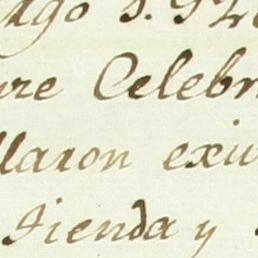 ago s.
re Celebr
llaron exi
tienda y